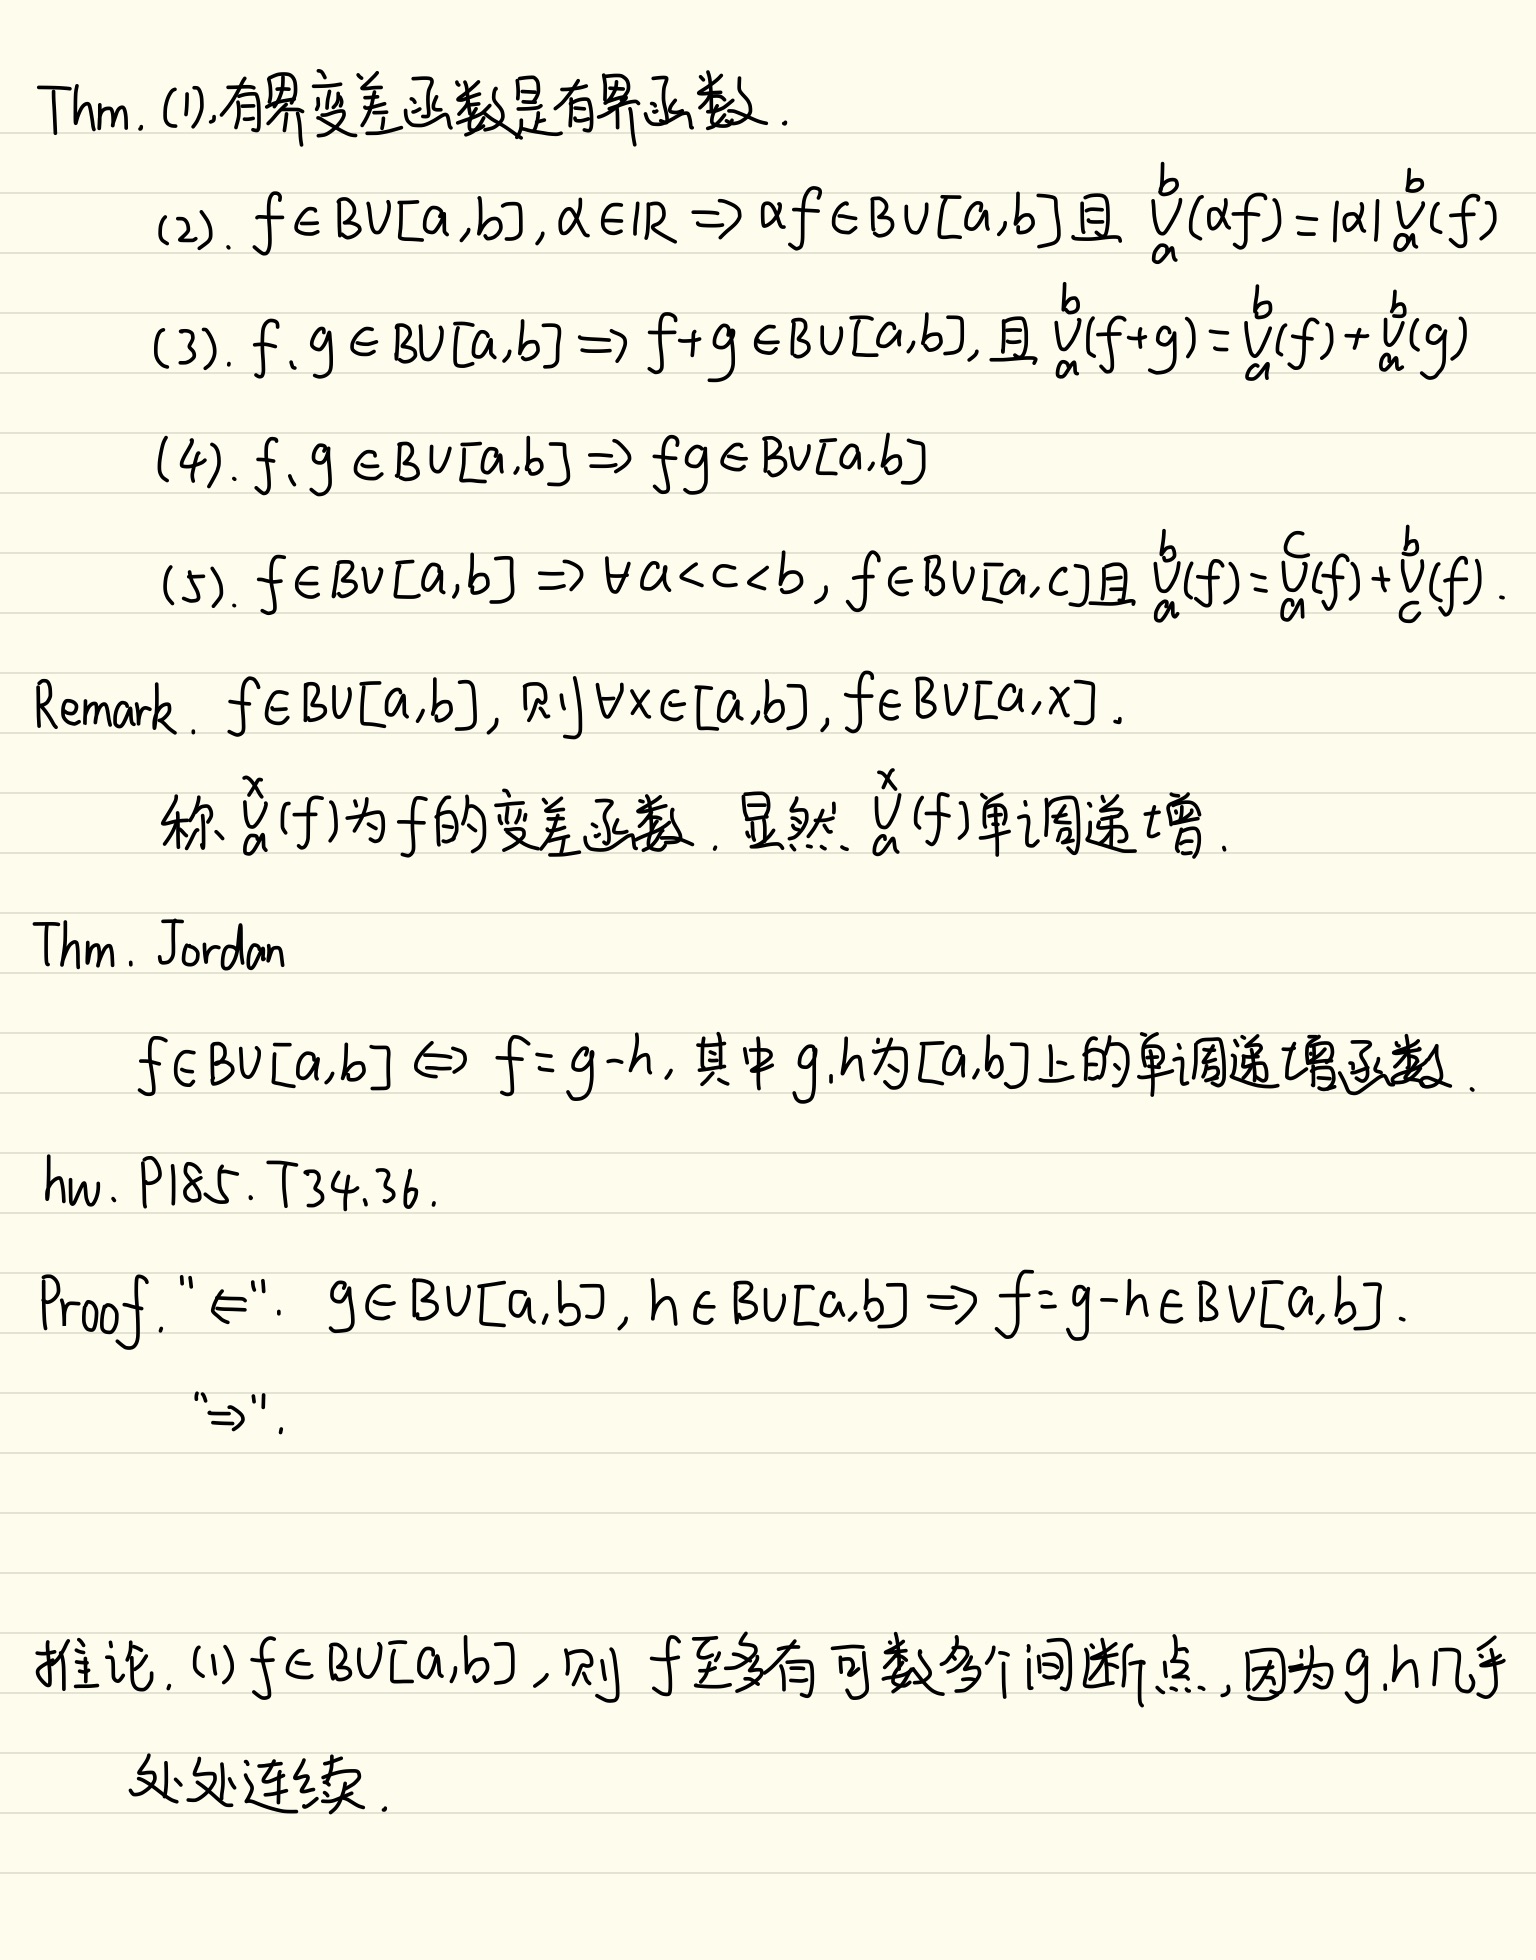 Thm. (1). 有界变差函数是有界函数.
(2). f∈BV[a,b], α∈ℝ ⇒ αf∈BV[a,b]且 ⋁_a^b(αf)=|α|⋁_a^b(f)
(3). f、g∈BV[a,b] ⇒ f+g∈BV[a,b], 且 ⋁_a^b(f+g)=⋁_a^b(f)+⋁_a^b(g)
(4). f、g∈BV[a,b] ⇒ fg∈BV[a,b]
(5). f∈BV[a,b] ⇒ ∀a<c<b, f∈BV[a,c]且 ⋁_a^b(f)=⋁_a^c(f)+⋁_c^b(f).
Remark. f∈BV[a,b], 则∀x∈[a,b], f∈BV[a,x].
称 ⋁_a^x(f)为f的变差函数. 显然 ⋁_a^x(f)单调递增.
Thm. Jordan
f∈BV[a,b] ⇔ f=g-h, 其中g.h为[a,b]上的单调递增函数.
hw. P185. T34.36.
Proof. "⇐". g∈BV[a,b], h∈BV[a,b] ⇒ f=g-h∈BV[a,b].
"⇒".
推论. (1) f∈BV[a,b], 则 f至多有可数多个间断点, 因为g.h几乎
处处连续.